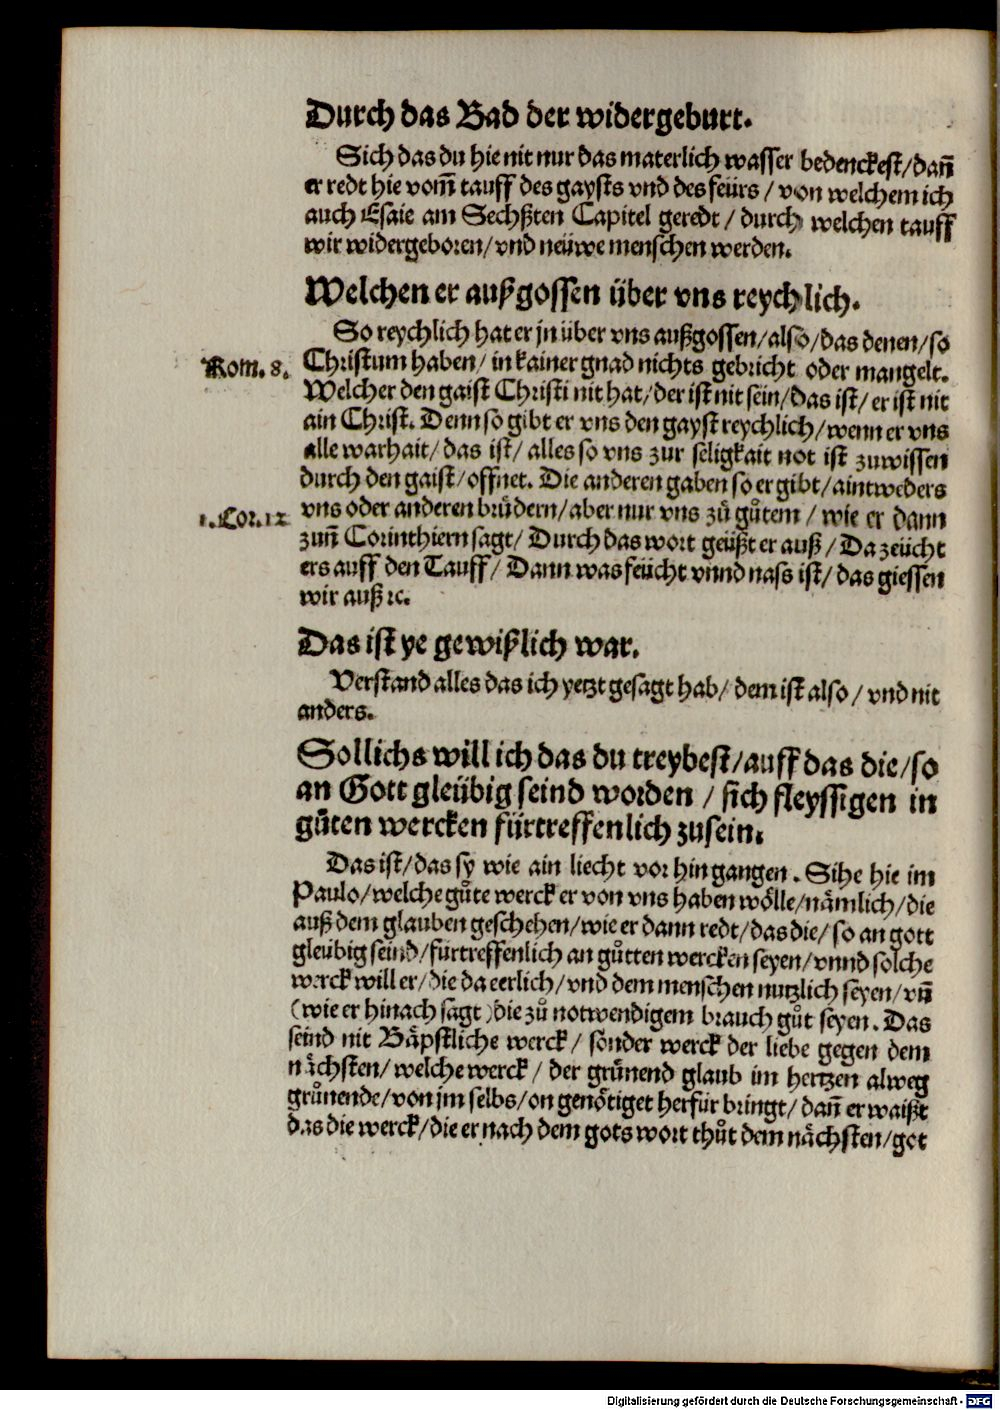 Durch das Bad der widergeburt.
Sich das du hie nit nur das materlich wasser bedenckest/dañ
er redt hie vom̃ tauff des gaysts vnd des feürs / von welchem ich
auch Esaie am Sechßten Capitel geredt / durch welchen tauff
wir widergeboren/vnd neüwe menschen werden.
Welchen er außgossen über vns reychlich.
So reychlich hat er jn über vns außgossen/also/das denen/so
Rom. 8. Christum haben/ in kainer gnad nichts gebricht oder mangelt.
Welcher den gaist Christi nit hat/der ist nit sein/das ist/er ist nit
ain Christ. Denn so gibt er vns den gayst reychlich/wenn er vns
alle warhait/das ist/ alles so vns zur seligkait not ist zuwissen
durch den gaist/offnet. Die anderen gaben so er gibt/aintweders
1. Cor. 12 vns oder anderen brüdern/aber nur vns zů gůtem / wie er dann
zun̄ Corinthiern sagt/ Durch das wort geüßt er auß/ Da zeücht
ers auff den Tauff/ Dann was feücht vnnd nass ist/das giessen
wir auß ꝛc.
Das ist ye gewißlich war.
Verstand alles das ich yetzt gesagt hab/ dem ist also/ vnd nit
anders.
Sollichs will ich das du treybest/auff das die/so
an Gott gleübig seind worden / sich fleyssigen in
gůten wercken fürtreffenlich zusein.
Das ist/das sy wie ain liecht vor hin gangen. Sihe hie im
Paulo/welche gůte werck er von vns haben wölle/nämlich/die
auß dem glauben geschehen/wie er dann redt/das die/ so an gott
gleübig seind/fürtreffenlich an gůtten wercken seyen/vnnd solche
werck will er/die da eerlich/vnd dem menschen nutzlich seyen/vñ
(wie er hinach sagt) die zů notwendigem brauch gůt seyen. Das
seind nit Bäpstliche werck/ sonder werck der liebe gegen dem
nächsten/ welche werck / der grünend glaub im hertzen alweg
grůnende/von jm selbs/on genötiget herfür bringt/ dañ er waißt
das die werck/die er nach dem gots wort thůt dem nächsten/got
Digitalisierung gefördert durch die Deutsche Forschungsgemeinschaft - DFG